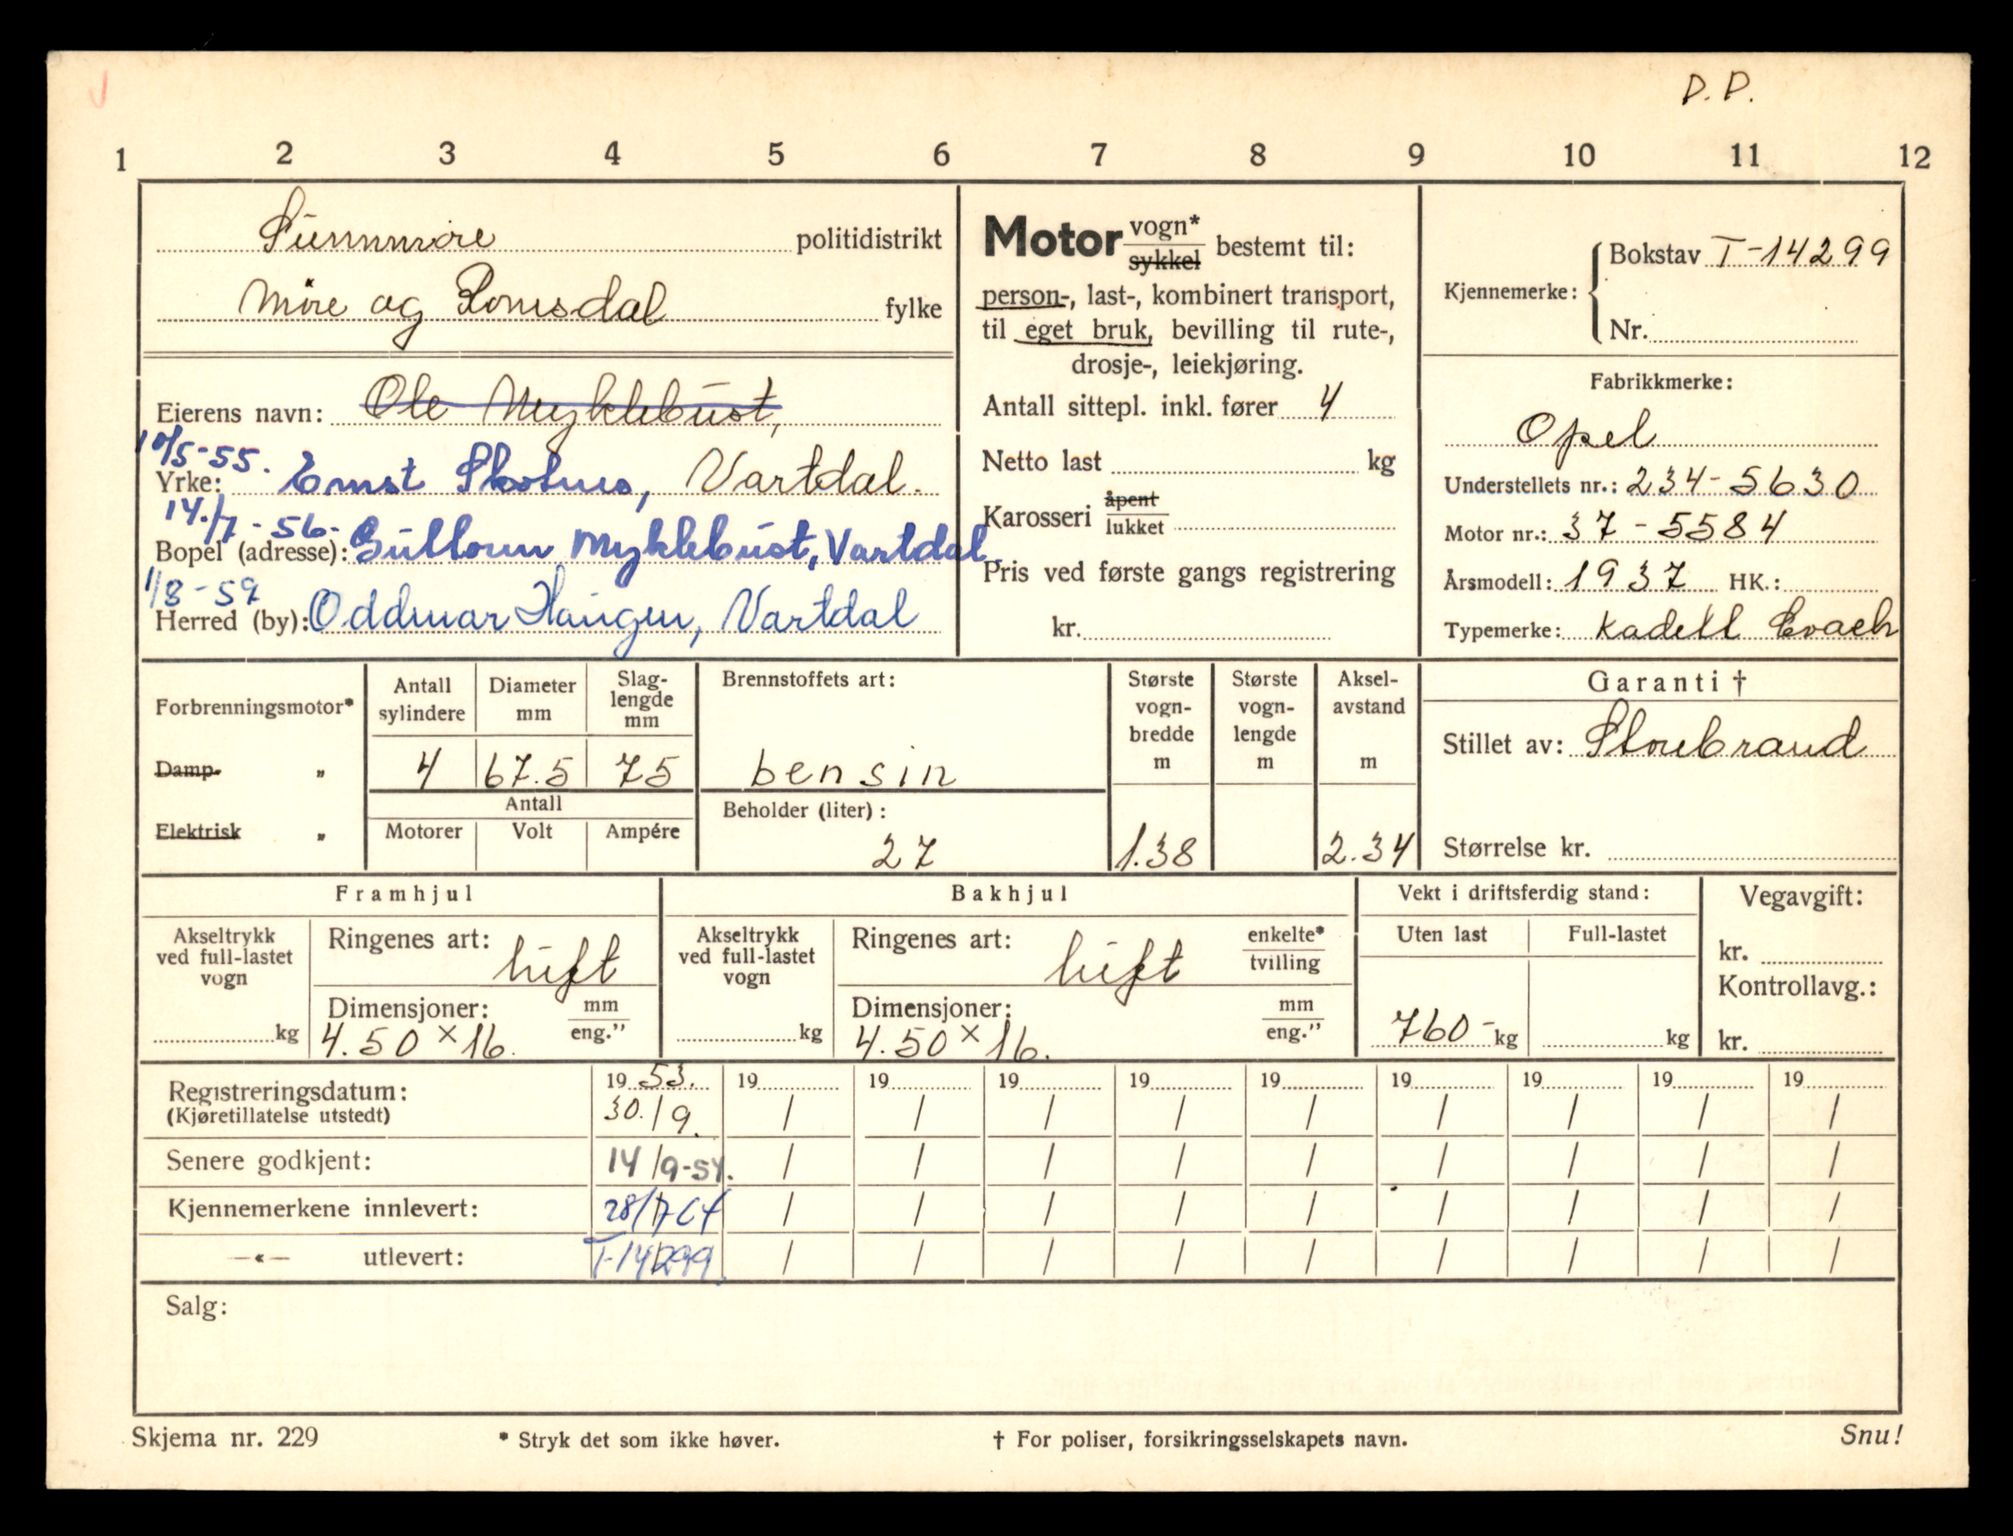 D.D.
1 2 3 4 5 6 7 8 9 10 11 12
Sunnmøre politidistrikt
Møre og Romsdal fylke
Eierens navn: Ole Myklebust,
10/5-55.
Yrke: Vartdal.
14./7-56-
Bopel (adresse): Myklebust, Vartdal
1/8-59
Herred (by): Oddmar Haugen, Vartdal
Motor vogn* sykkel bestemt til:
person-, last-, kombinert transport,
til eget bruk, bevilling til rute-,
drosje-, leiekjøring.
Antall sittepl. inkl. fører 4
Netto last kg
Karosseri åpent lukket
Pris ved første gangs registrering
kr.
Kjennemerke: Bokstav T-14299
Nr.
Fabrikkmerke:
Opel
Understellets nr.: 234-5630
Motor nr.: 37-5584
Årsmodell: 1937 HK.:
Typemerke: Kadett
Forbrenningsmotor*
Damp- „
Elektrisk „
Antall sylindere
4
Diameter mm
67.5
Slaglengde mm
75
Antall
Motorer Volt Ampére
Brennstoffets art:
bensin
Beholder (liter):
27
Største vognbredde m
1.38
Største vognlengde m
Akselavstand m
2.34
Garanti †
Stillet av: Storebrand
Størrelse kr.
Framhjul
Akseltrykk ved full-lastet vogn
kg
Ringenes art: luft
Dimensjoner: mm eng."
4.50 x 16.
Bakhjul
Akseltrykk ved full-lastet vogn
kg
Ringenes art: luft enkelte* tvilling
Dimensjoner: mm eng."
4.50 x 16.
Vekt i driftsferdig stand:
Uten last Full-lastet
760- kg kg
Vegavgift:
kr.
Kontrollavg.:
kr.
Registreringsdatum: 1953. 19 19 19 19 19 19 19 19 19
(Kjøretillatelse utstedt) 30./9. / / / / / / / / /
Senere godkjent: 14/9-54. / / / / / / / / /
Kjennemerkene innlevert: 28/7-64 / / / / / / / / /
—«— utlevert: T-14299. / / / / / / / / /
Salg:
Skjema nr. 229
* Stryk det som ikke høver.
† For poliser, forsikringsselskapets navn.
Snu!